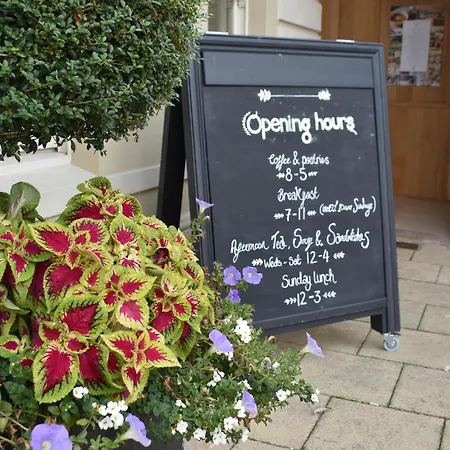 Opening hours
Coffee & pastries
8-5
Breakfast
7-11 (until 10am Sundays)
Afternoon Tea, Soup & Sandwiches
Weds-Sat 12-4
Sunday lunch
12-3